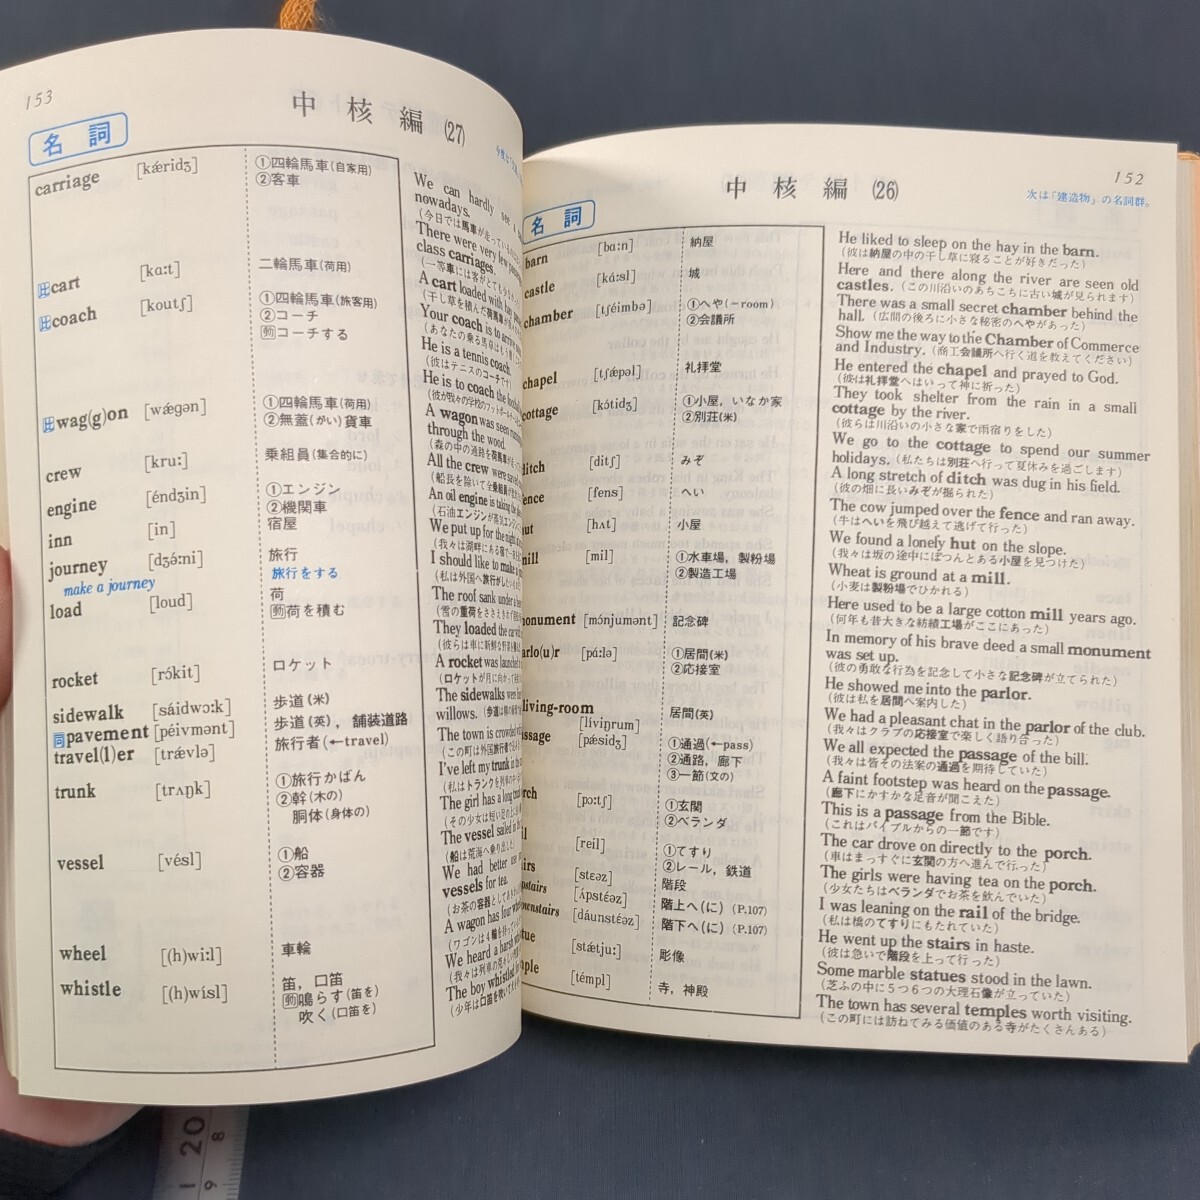 153
中核編 (27)
名詞
carriage [kǽridʒ] ①四輪馬車(自家用)
②客車
比 cart [kɑːt] 二輪馬車(荷用)
比 coach [koutʃ] ①四輪馬車(旅客用)
②コーチ
動 コーチする
比 wag(g)on [wǽgən] ①四輪馬車(荷用)
②無蓋(がい)貨車
crew [kruː] 乗組員(集合的に)
engine [éndʒin] ①エンジン
②機関車
inn [in] 宿屋
journey [dʒə́ːni] 旅行
make a journey 旅行をする
load [loud] 荷
動 荷を積む
rocket [rɔ́kit] ロケット
sidewalk [sáidwɔːk] 歩道(米)
同 pavement [péivmənt] 歩道(英), 舗装道路
travel(l)er [trǽvlə] 旅行者(←travel)
trunk [trʌŋk] ①旅行かばん
②幹(木の)
胴体(身体の)
vessel [vésl] ①船
②容器
wheel [(h)wiːl] 車輪
whistle [(h)wísl] 笛, 口笛
動 鳴らす(笛を)
吹く(口笛を)
We can hardly see a
nowadays.
(今日では馬車が走っている
There were very few
class carriages.
(一等車には客がとても少
A cart loaded with
(干し草を積んだ荷馬車が
Your coach is to
(あなたの乗る馬車は
He is a tennis coach.
(彼はテニスのコーチです)
He is to coach the
(彼が我々の学校のフットボール
A wagon was seen
through the wood.
(森の中の道路を荷馬車が
All the crew were
(船長を除いて全乗組員が
An oil engine is taking the
(石油エンジンが蒸気エンジン
We put up for the night
(我々は湖畔にある宿で一
I should like to make
(私は外国へ旅行がしたい
The roof sank under
(雪の重荷をささえきれず
They loaded the car
(彼らは車に新鮮な野菜を積
A rocket was launched
(ロケットが月に向かって
The sidewalks were
willows. (歩道は柳の
The town is crowded
(この町は外国旅行者で
I've left my trunk in
(私はトランクを列車の中
The girl has a long
(その少女は
The vessel sailed
(船は荒海へ乗り出した)
We had better use
vessels for tea.
(お茶の容器として
A wagon has four
(ワゴンは4輪を持って
We heard a harsh
(我々は列車の
The boy whistled
(少年は口笛を吹いて
152
中核編 (26)
次は「建造物」の名詞群。
名詞
barn [bɑːn] 納屋
castle [kɑ́ːsl] 城
chamber [tʃéimbə] ①へや(=room)
②会議所
chapel [tʃǽpəl] 礼拝堂
cottage [kɔ́tidʒ] ①小屋, いなか家
②別荘(米)
ditch [ditʃ] みぞ
ence [fens] へい
ut [hʌt] 小屋
mill [mil] ①水車場, 製粉場
②製造工場
monument [mɔ́njumənt] 記念碑
arlo(u)r [pɑ́ːlə] ①居間(米)
②応接室
living-room [líviŋrum] 居間(英)
ssage [pǽsidʒ] ①通過(←pass)
②通路, 廊下
③一節(文の)
rch [pɔːtʃ] ①玄関
②ベランダ
il [reil] ①てすり
②レール, 鉄道
airs [stɛəz] 階段
pstairs [ʌ́pstɛ́əz] 階上へ(に) (P.107)
ownstairs [dáunstɛ́əz] 階下へ(に) (P.107)
tue [stǽtjuː] 彫像
mple [témpl] 寺, 神殿
He liked to sleep on the hay in the barn.
(彼は納屋の中の干し草に寝ることが好きだった)
Here and there along the river are seen old
castles. (この川沿いのあちこちに古い城が見られます)
There was a small secret chamber behind the
hall. (広間の後ろに小さな秘密のへやがあった)
Show me the way to the Chamber of Commerce
and Industry. (商工会議所へ行く道を教えてください)
He entered the chapel and prayed to God.
(彼は礼拝堂へはいって神に祈った)
They took shelter from the rain in a small
cottage by the river.
(彼らは川沿いの小さな家で雨宿りをした)
We go to the cottage to spend our summer
holidays. (私たちは別荘へ行って夏休みを過ごします)
A long stretch of ditch was dug in his field.
(彼の畑に長いみぞが掘られた)
The cow jumped over the fence and ran away.
(牛はへいを飛び越えて逃げて行った)
We found a lonely hut on the slope.
(我々は坂の途中にぽつんとある小屋を見つけた)
Wheat is ground at a mill.
(小麦は製粉場でひかれる)
Here used to be a large cotton mill years ago.
(何年も昔大きな紡績工場がここにあった)
In memory of his brave deed a small monument
was set up.
(彼の勇敢な行為を記念して小さな記念碑が立てられた)
He showed me into the parlor.
(彼は私を居間へ案内した)
We had a pleasant chat in the parlor of the club.
(我々はクラブの応接室で楽しく語り合った)
We all expected the passage of the bill.
(我々は皆その法案の通過を期待していた)
A faint footstep was heard on the passage.
(廊下にかすかな足音が聞こえた)
This is a passage from the Bible.
(これはバイブルからの一節です)
The car drove on directly to the porch.
(車はまっすぐに玄関の方へ進んで行った)
The girls were having tea on the porch.
(少女たちはベランダでお茶を飲んでいた)
I was leaning on the rail of the bridge.
(私は橋のてすりにもたれていた)
He went up the stairs in haste.
(彼は急いで階段を上って行った)
Some marble statues stood in the lawn.
(芝ふの中に5つ6つの大理石像が立っていた)
The town has several temples worth visiting.
(この町には訪ねてみる価値のある寺がたくさんある)
20
8
9